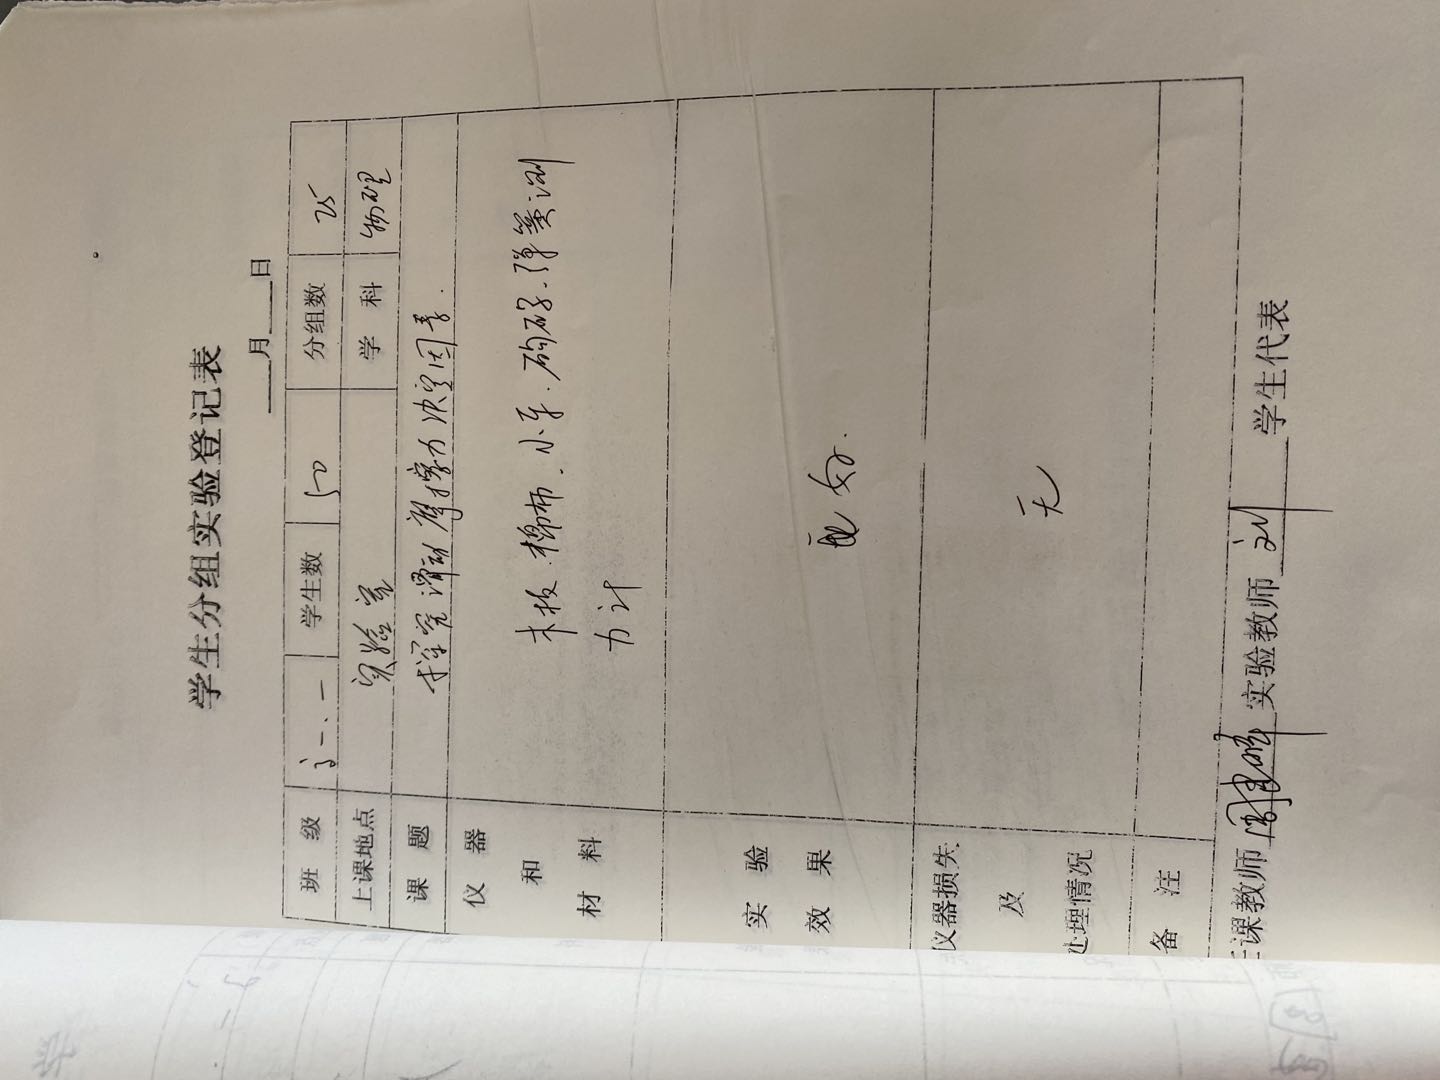 学生分组实验登记表
月 日
班 级 学生数 50 分组数 25
上课地点 实验室 学 科 物理
课 题 探究滑动摩擦力决定因素.
仪 器 和 材 料 木板.棉布.小车.砝码.弹簧测
力计
实 验 效 果 良好.
仪器损失 及 处理情况 无
备 注
课教师 实验教师 刘 学生代表